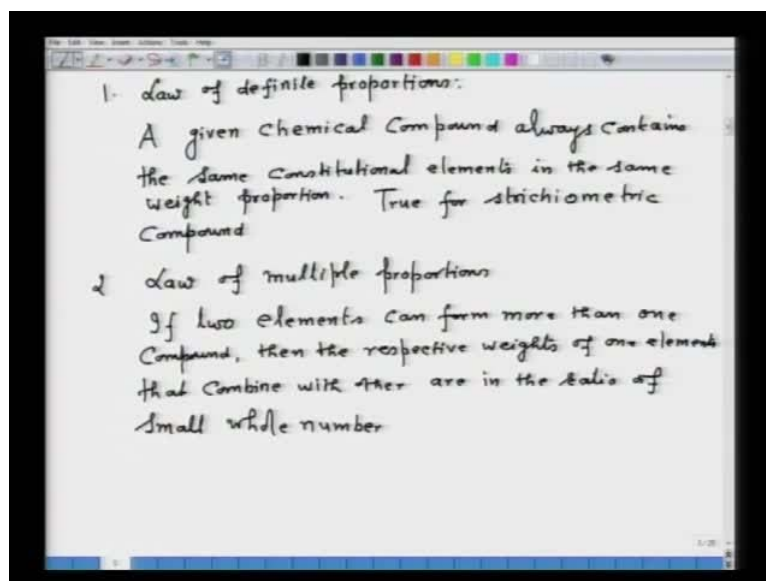 File Edit View Insert Actions Tools Help
1. Law of definite proportions:
A given Chemical Compound always Contains
the same Constitutional elements in the same
weight proportion. True for stoichiometric
Compound
2 Law of multiple proportions
If two elements can form more than one
Compound, then the respective weights of one element
that Combine with other are in the ratio of
small whole number